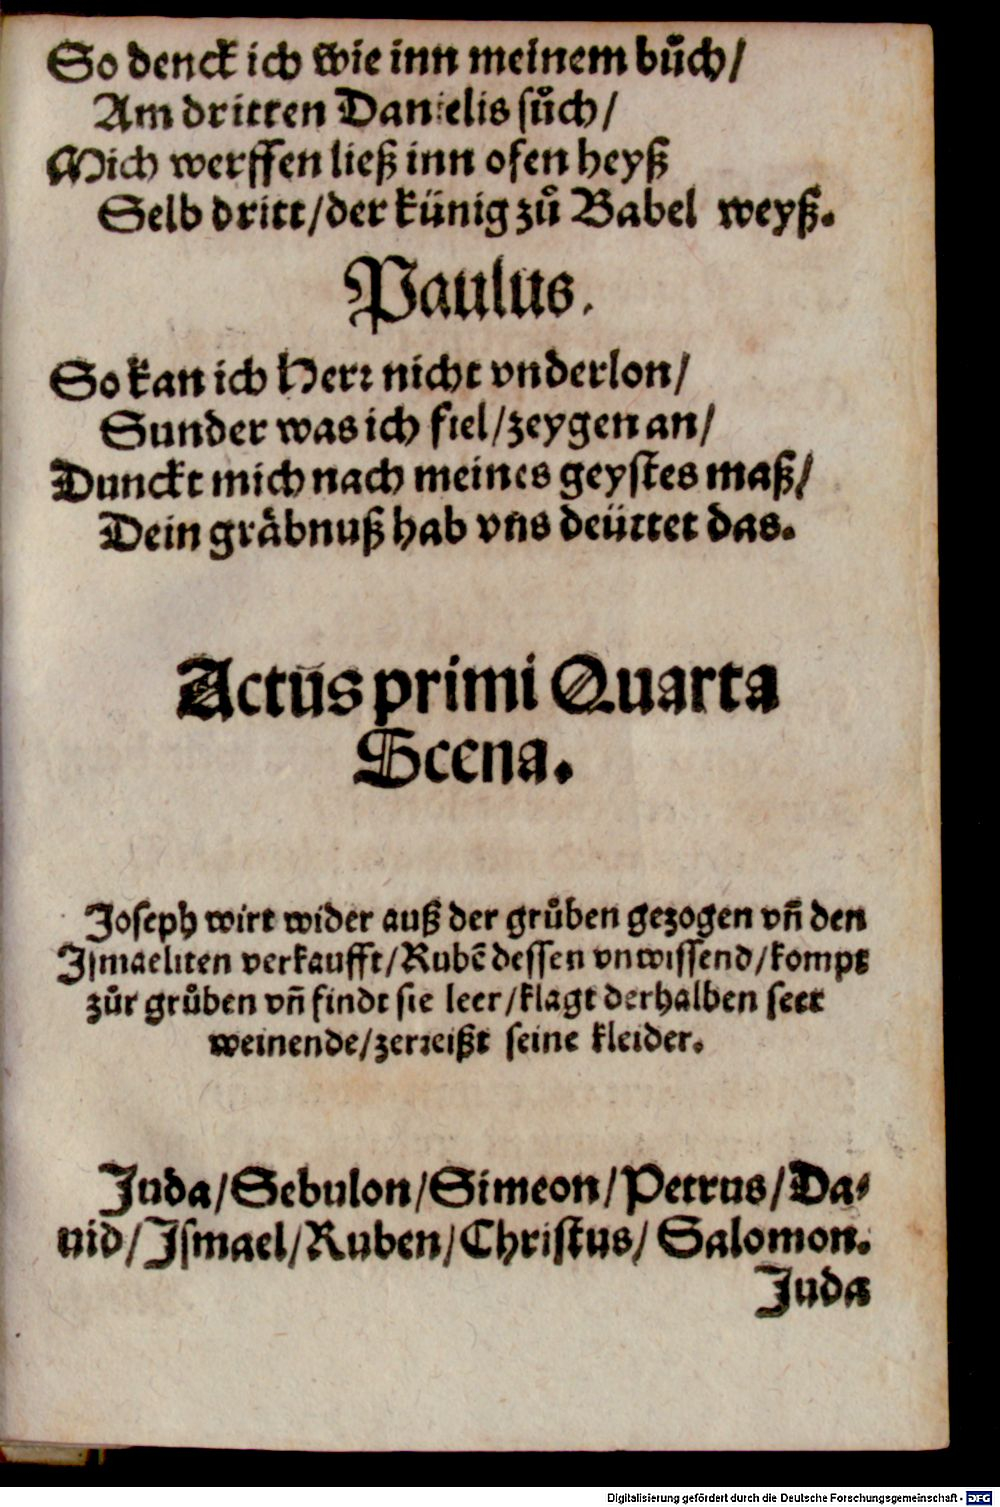 So denck ich wie inn meinem buͦch/
Am dritten Danielis suͦch/
Mich werffen ließ inn ofen heyß
Selb dritt/der künig zuͦ Babel weyß.
Paulus.
So kan ich Herr nicht vnderlon/
Sunder was ich fiel/zeygen an/
Dunckt mich nach meines geystes maß/
Dein gräbnuß hab vns deüttet das.
Actus primi Quarta
Scena.
Joseph wirt wider auß der gruͦben gezogen vñ den
Ismaeliten verkaufft/Rubẽ dessen vnwissend/kompt
zuͦr gruͦben vñ findt sie leer/klagt derhalben seer
weinende/zerreißt seine kleider.
Juda/Sebulon/Simeon/Petrus/Da⸗
uid/Ismael/Ruben/Christus/Salomon.
Juda
Digitalisierung gefördert durch die Deutsche Forschungsgemeinschaft - DFG